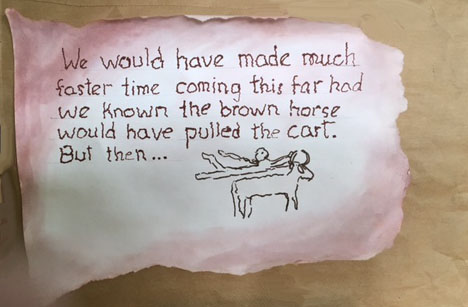 We would have made much
faster time coming this far had
we known the brown horse
would have pulled the cart.
But then...